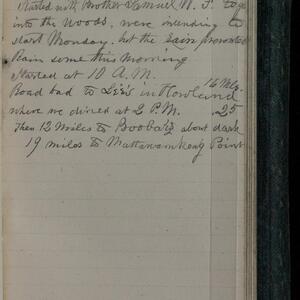 Started with Brother Samuel W. F. to go
into the Woods, were intending to
start Monday, but the Rain prevented
Rain some this morning
Started at 10 A.M. 16 Mls.
Road bad to in Howland
where we dined at 2 P.M. .25
Then 12 Miles to about dark
19 miles to Mattawamkeag Point